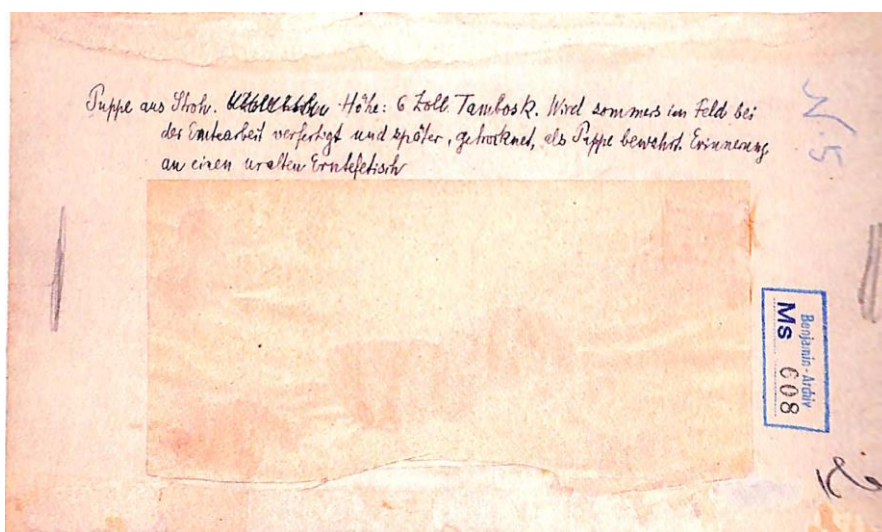 Puppe aus Stroh. Höhe: 6 Zoll. Tambosk. Wird sommers im Feld bei
der Erntearbeit verfertigt und später, getrocknet, als Puppe bewahrt. Erinnerung
an einen uralten Erntefetisch
N. 5
Benjamin-Archiv
Ms 608